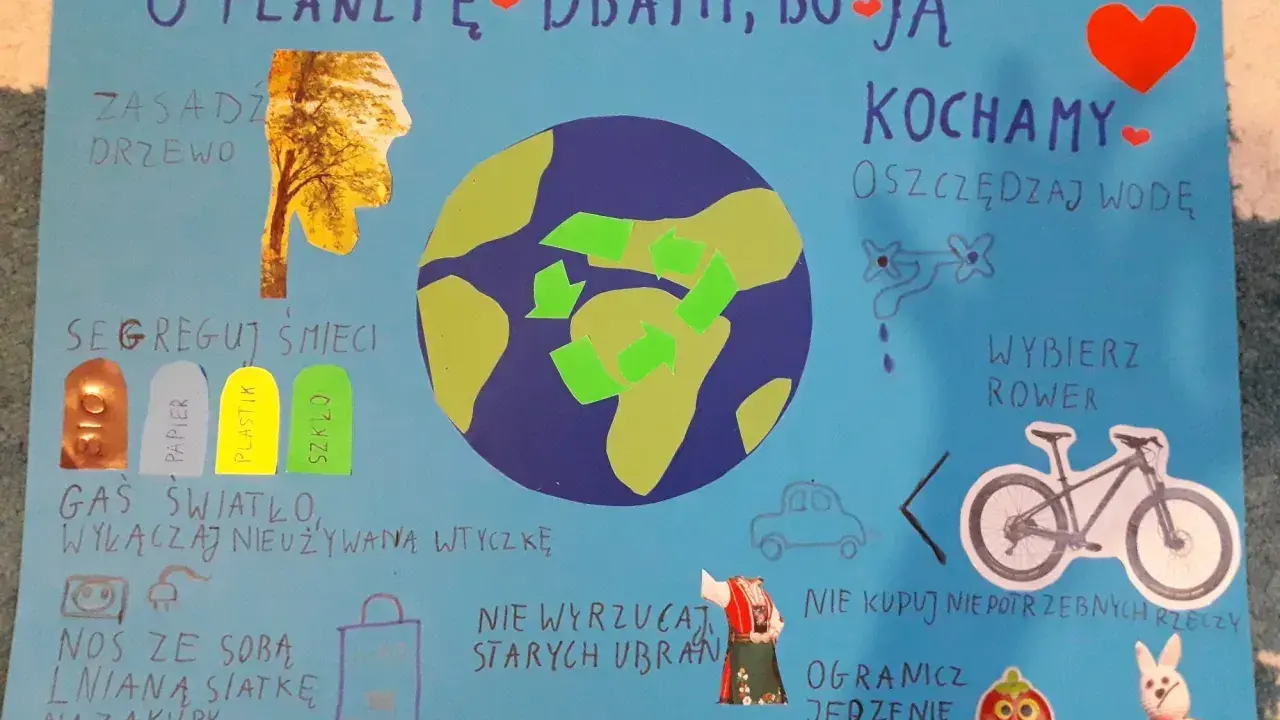 O PLANETĘ DBAM, BO JĄ
KOCHAMY
ZASADŹ
DRZEWO
OSZCZĘDZAJ WODĘ
SEGREGUJ ŚMIECI
BIO
PAPIER
PLASTIK
SZKŁO
WYBIERZ
ROWER
GAŚ ŚWIATŁO,
WYŁĄCZAJ NIEUŻYWANĄ WTYCZKĘ
NOŚ ZE SOBĄ
LNIANĄ SIATKĘ
NA ZAKUPY
NIE WYRZUCAJ
STARYCH UBRAŃ
NIE KUPUJ NIEPOTRZEBNYCH RZECZY
OGRANICZ
JEDZENIE